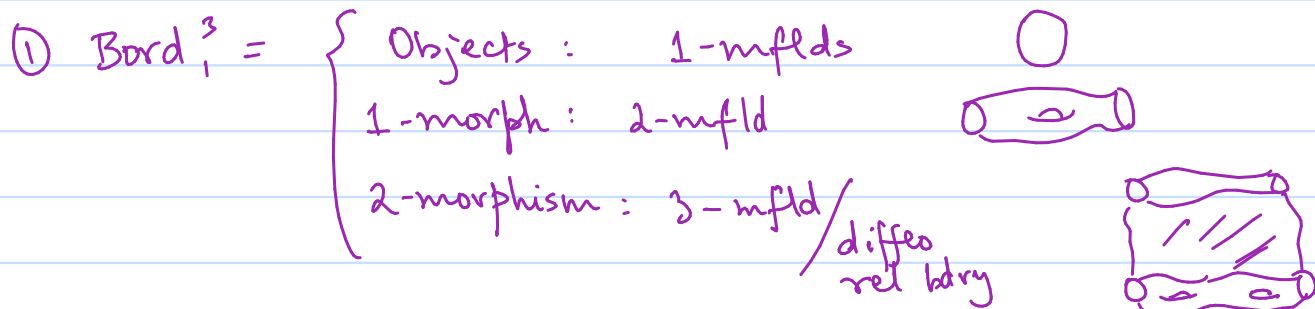 ① Bord₁³ = { Objects : 1-mflds
1-morph : 2-mfld
2-morphism : 3-mfld / diffeo
rel bdry